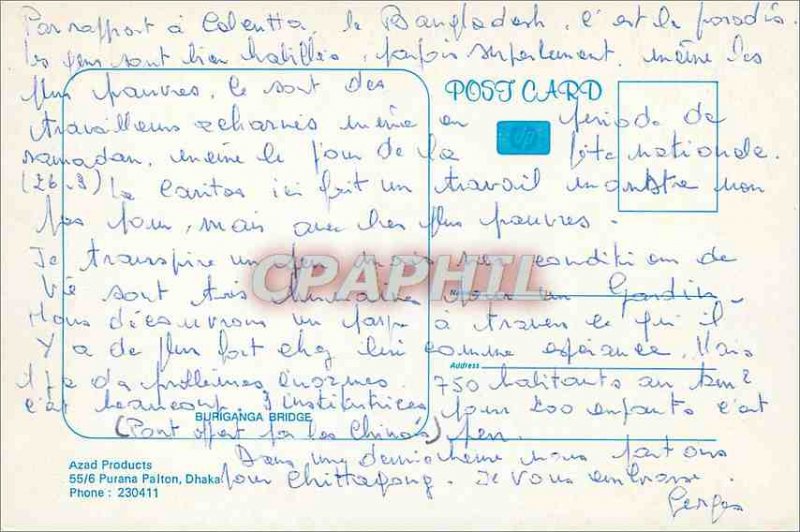 Par rapport à Calcutta, le Bangladesh, c'est le paradis.
les gens sont bien habillés, parfois superbement, même les
plus pauvres, ce sont des
POST CARD
travailleurs acharnés même en période de
ramadan, même le jour de la fête nationale.
(26.3) La Caritas ici fait un travail monstre non
pas pour, mais avec les plus pauvres.
Je transpire un peu mais mes conditions de
vie sont très pour un
Nous découvrons un pays à travers ce qu'il
y a de plus fort chez lui comme espérance. Mais
Address
il y a des problèmes énormes. 750 habitants au km2
c'est beaucoup, 3 institutrices pour 200 enfants c'est
BURIGANGA BRIDGE
(Pont offert par les Chinois) peu.
Dans une demie heure nous partons
pour Chittagong. Je vous embrasse.
Georges
Azad Products
55/6 Purana Palton, Dhaka
Phone : 230411
CPAPHIL